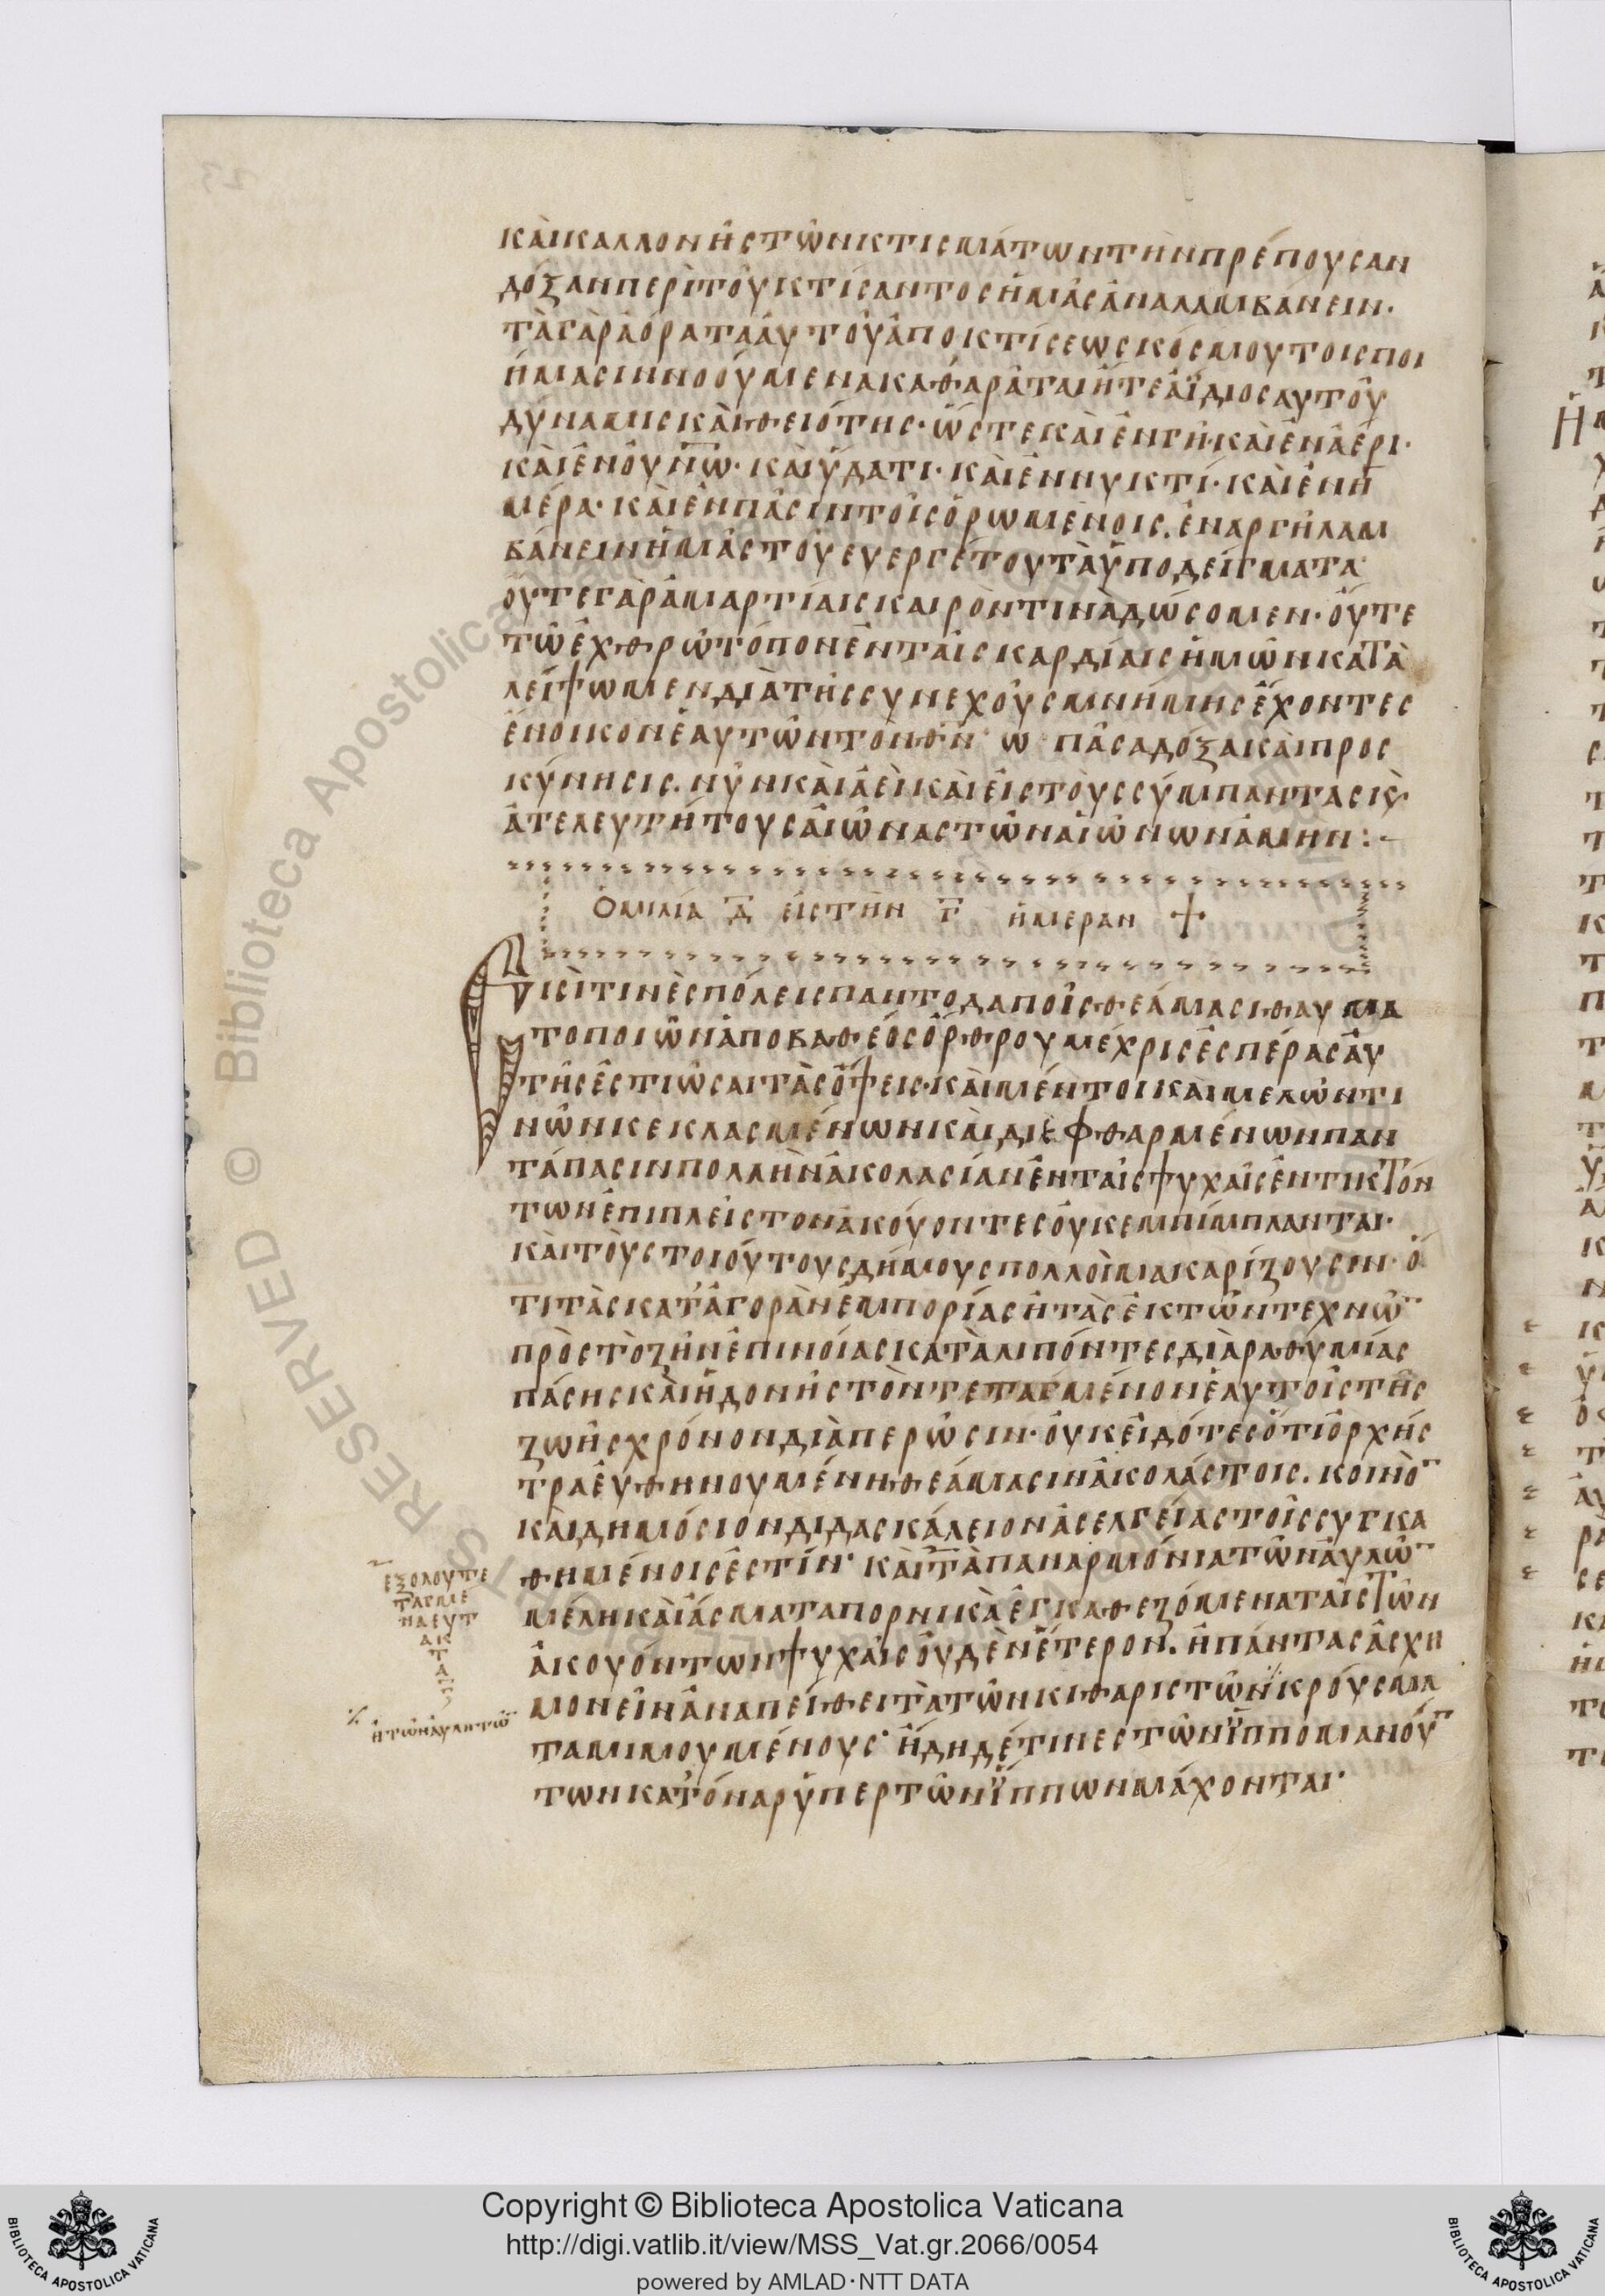 καὶ καλλονῆς τῶν κτισμάτων τὴν πρέπουσαν
δόξαν περὶ τοῦ κτίσαντος ἡμᾶς ἀναλαμβάνειν·
τὰ γὰρ ἀόρατα αὐτοῦ ἀπο κτίσεως κόσμου τοις ποι
ήμασιν νοούμενα καθαρᾶται ἥτε ἀΐδιος αυτοῦ
δύναμις καὶ θειότης· ὥστε καὶ ἐν γῆ· καὶ ἐν ἀέρι·
καὶ ἐν οὐν̅ῶ̅· καὶ ὕδατι· καὶ ἐν νυκτί· καὶ ἐν ἡ
μέρα· καὶ ἐν πᾶσιν τοῖς ὁρωμένοις. ἐναργῆ λαμ
βάνειν ἡμᾶς τοῦ ευεργέτου τὰ ὑποδείγματα
οὔτε γὰρ ἁμαρτίαις καιρόν τινὰ δώσομεν· οὔτε
τῶ ἐχθρῶ τόπον ἐν ταῖς καρδίαις ἡμῶν κατὰ
λείψωμεν διὰ τῆς συνεχοῦς μνήμης ἔχοντες
ἔνοικον ἑαυτῶν τὸν θ̅ν̅· ω πᾶσα δοξα καὶ προς
κύνησις. νῦν καὶ ἀεὶ καὶ εἰς τοὺς σύμπαντας κ̣ὶ·
ἀτελευτήτους αἰῶνας τῶν αἰώνων ἀμήν :-
Ὁμιλία Δ̅ εἰς τὴν Γ̅ ἡμεραν +
Εἰσί τινὲς πόλεις παντοδαποῖς θεάμασι θαυμα
τοποιῶν ἀπο βαθέος ὄρθρου μέχρις ἑσπέρας ἀυ
τῆς ἑστιῶσαι τὰς ὄψεις· καὶ μέντοι και μελῶν τι
νῶν κεκλασμένων καὶ διεφθαρμένων παν
τάπασιν πολλὴν ἀκολασίαν ἐν ταῖς ψυχαῖς ἐντικτόν
των ἐπιπλεῖστον ἀκούοντες οὐκ εμπίμπλανται·
καὶ τοὺς τοιούτους δήμους πολλοὶ μακαρίζουσιν· ὅ
τι τὰς κατ' ἀγορὰν ἐμπορίας ἢ τὰς ἐκ τῶν τεχνῶ¯
πρὸς τὸ ζῆν ἐπινοίας κατὰλιπόντες διὰ ραθυμίας
πάσης καὶ ἡδονῆς τὸν τεταγμένον ἑαυτοῖς τῆς
ζωῆς χρόνον διὰπερῶσιν· οὐκ εἰδότες ὁτι ὀρχήσ
τρα ἐυθηνουμένη θεάμασιν ἀκολάστοις. κοινὸ¯
καὶ δημόσιον διδασκάλειον ἀσελγείας τοῖς συγκα
θημένοις ἐστίν· καὶ τὰ παναρμόνια τῶν ἀυλῶ¯
μέλη καὶ ἄσματα πορνικὰ ἐγκαθεζόμενα ταῖς τῶν
ἀκουόντων ψυχαῖς οὐδὲν ἕτερον. ἢ πάντας ἀσχη
μονεῖν ἀναπείθει τὰ τῶν κιθαριστῶν κρούσμα
τα μιμουμένους· ἤδη δέ τινες τῶν ἱππομανού¯
των κατ' όναρ ὑπερ τῶν ἵππων μάχονται·
εξολουτε
ταγμε
ναευτ
ακ
τ
α
ἢ τῶν ἀυλητῶ¯
Copyright © Biblioteca Apostolica Vaticana
http://digi.vatlib.it/view/MSS_Vat.gr.2066/0054
powered by AMLAD·NTT DATA
BIBLIOTECA APOSTOLICA VATICANA
BIBLIOTECA APOSTOLICA VATICANA